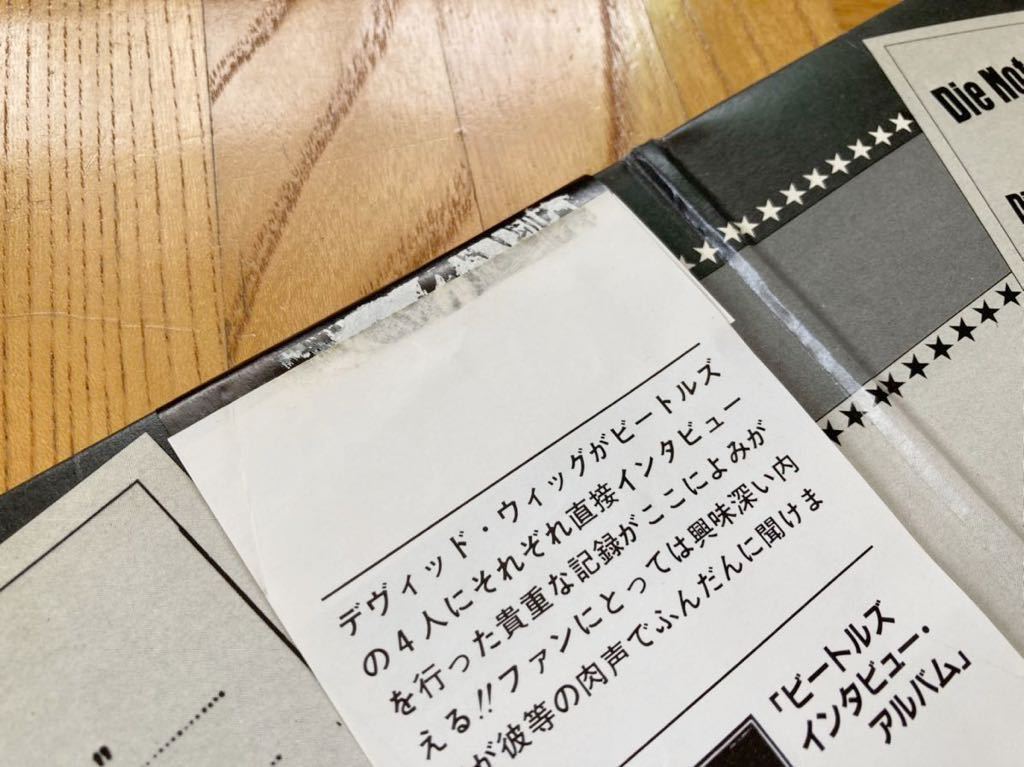 デヴィッド・ウィッグがビートルズ
の4人にそれぞれ直接インタビュー
を行った貴重な記録がここによみが
える!!ファンにとっては興味深い内
が彼等の肉声でふんだんに聞けま
「ビートルズ
インタビュー・
アルバム」
Die Not